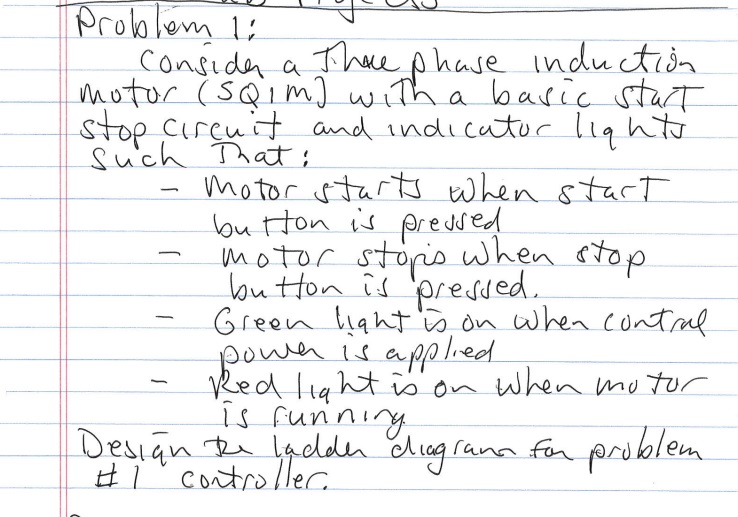 Problem 1:
Consider a Three phase induction
motor (SQIM) with a basic start
stop circuit and indicator lights
such That:
- Motor starts when start
button is pressed
- Motor stops when stop
button is pressed.
- Green light is on when control
power is applied
- Red light is on when motor
is running.
Design the ladder diagram for problem
#1 controller.